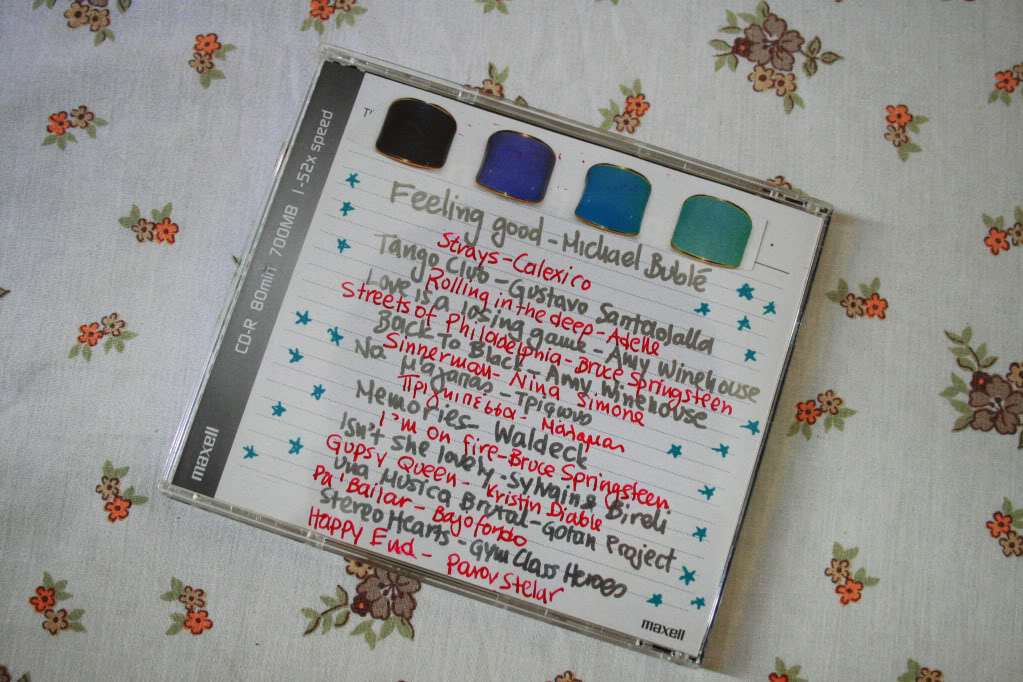 CD-R 80min 700MB 1-52x speed
maxell
Feeling good - Michael Bublé
Strays - Calexico
Tango Club - Gustavo Santaolalla
Rolling in the deep - Adelle
Love is a losing game - Amy Winehouse
Streets of Philadelphia - Bruce Springsteen
Back To Black - Amy Winehouse
Sinnerman - Nina Simone
Να μ'αγαπάς - Τρίφωνο
Πριγκιπέσσα - Μάλαμας
Memories - Waldeck
I'm on fire - Bruce Springsteen
Isn't she lovely - Sylvain & Bireli
Gypsy Queen - Kristin Diable
Una Musica Brutal - Gotan Project
Pa' Bailar - Bajofondo
Stereo Hearts - Gym Class Heroes
Happy End - Parov Stelar
maxell